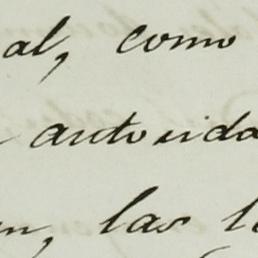 al, como
autorida
n, las